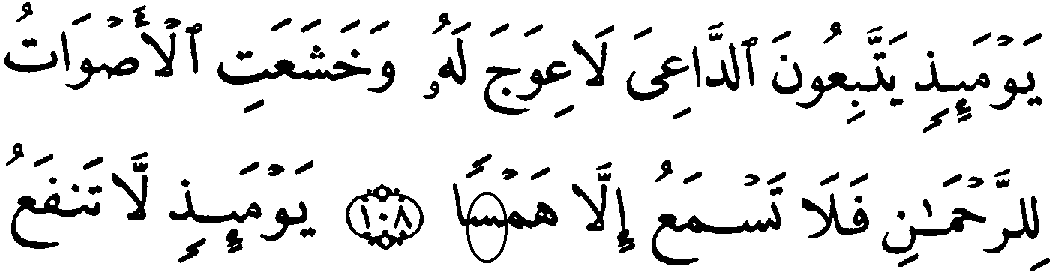 يَوْمَئِذٍ يَتَّبِعُونَ ٱلدَّاعِىَ لَا عِوَجَ لَهُۥ وَخَشَعَتِ ٱلْأَصْوَاتُ
لِلرَّحْمَـٰنِ فَلَا تَسْمَعُ إِلَّا هَمْسًا ١٠٨ يَوْمَئِذٍ لَّا تَنفَعُ